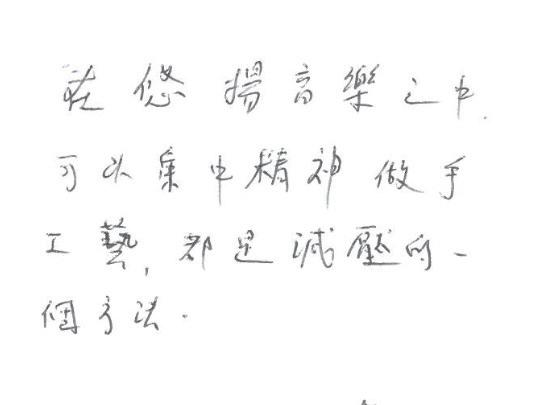 在悠揚音樂之中,
可以集中精神做手
工藝,都是減壓的一
個方法.